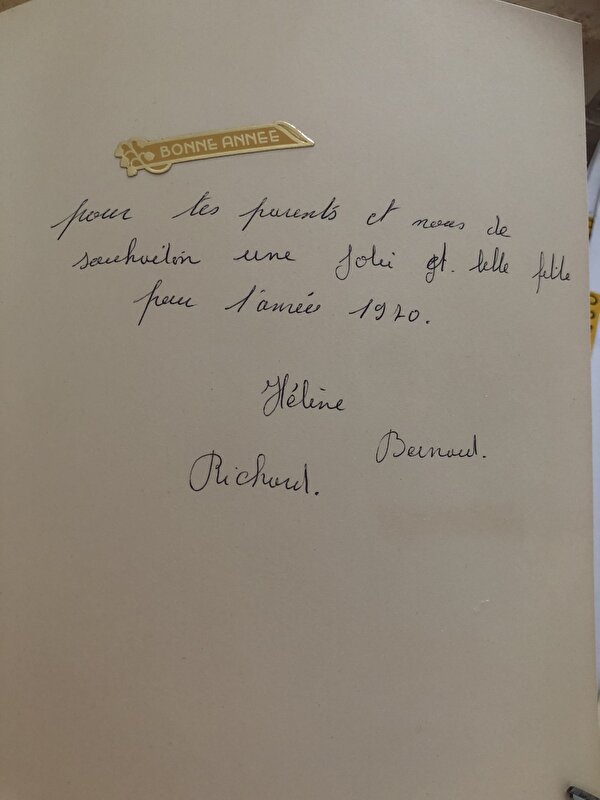 BONNE ANNEE
pour tes parents et nous de
souhaiton une Joli et. belle petite
pour l'année 1970.
Hélène
Bernard.
Richard.